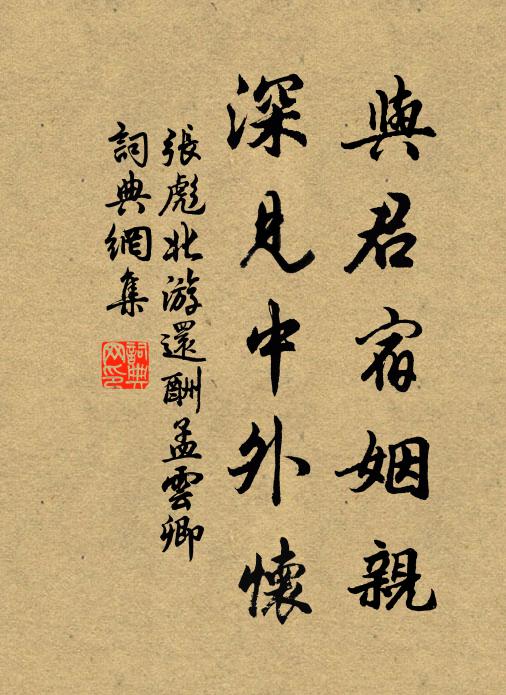 與君宿姻親
深見中外懷
張彪北游還酬孟雲卿
詞典網集
詞典
网印